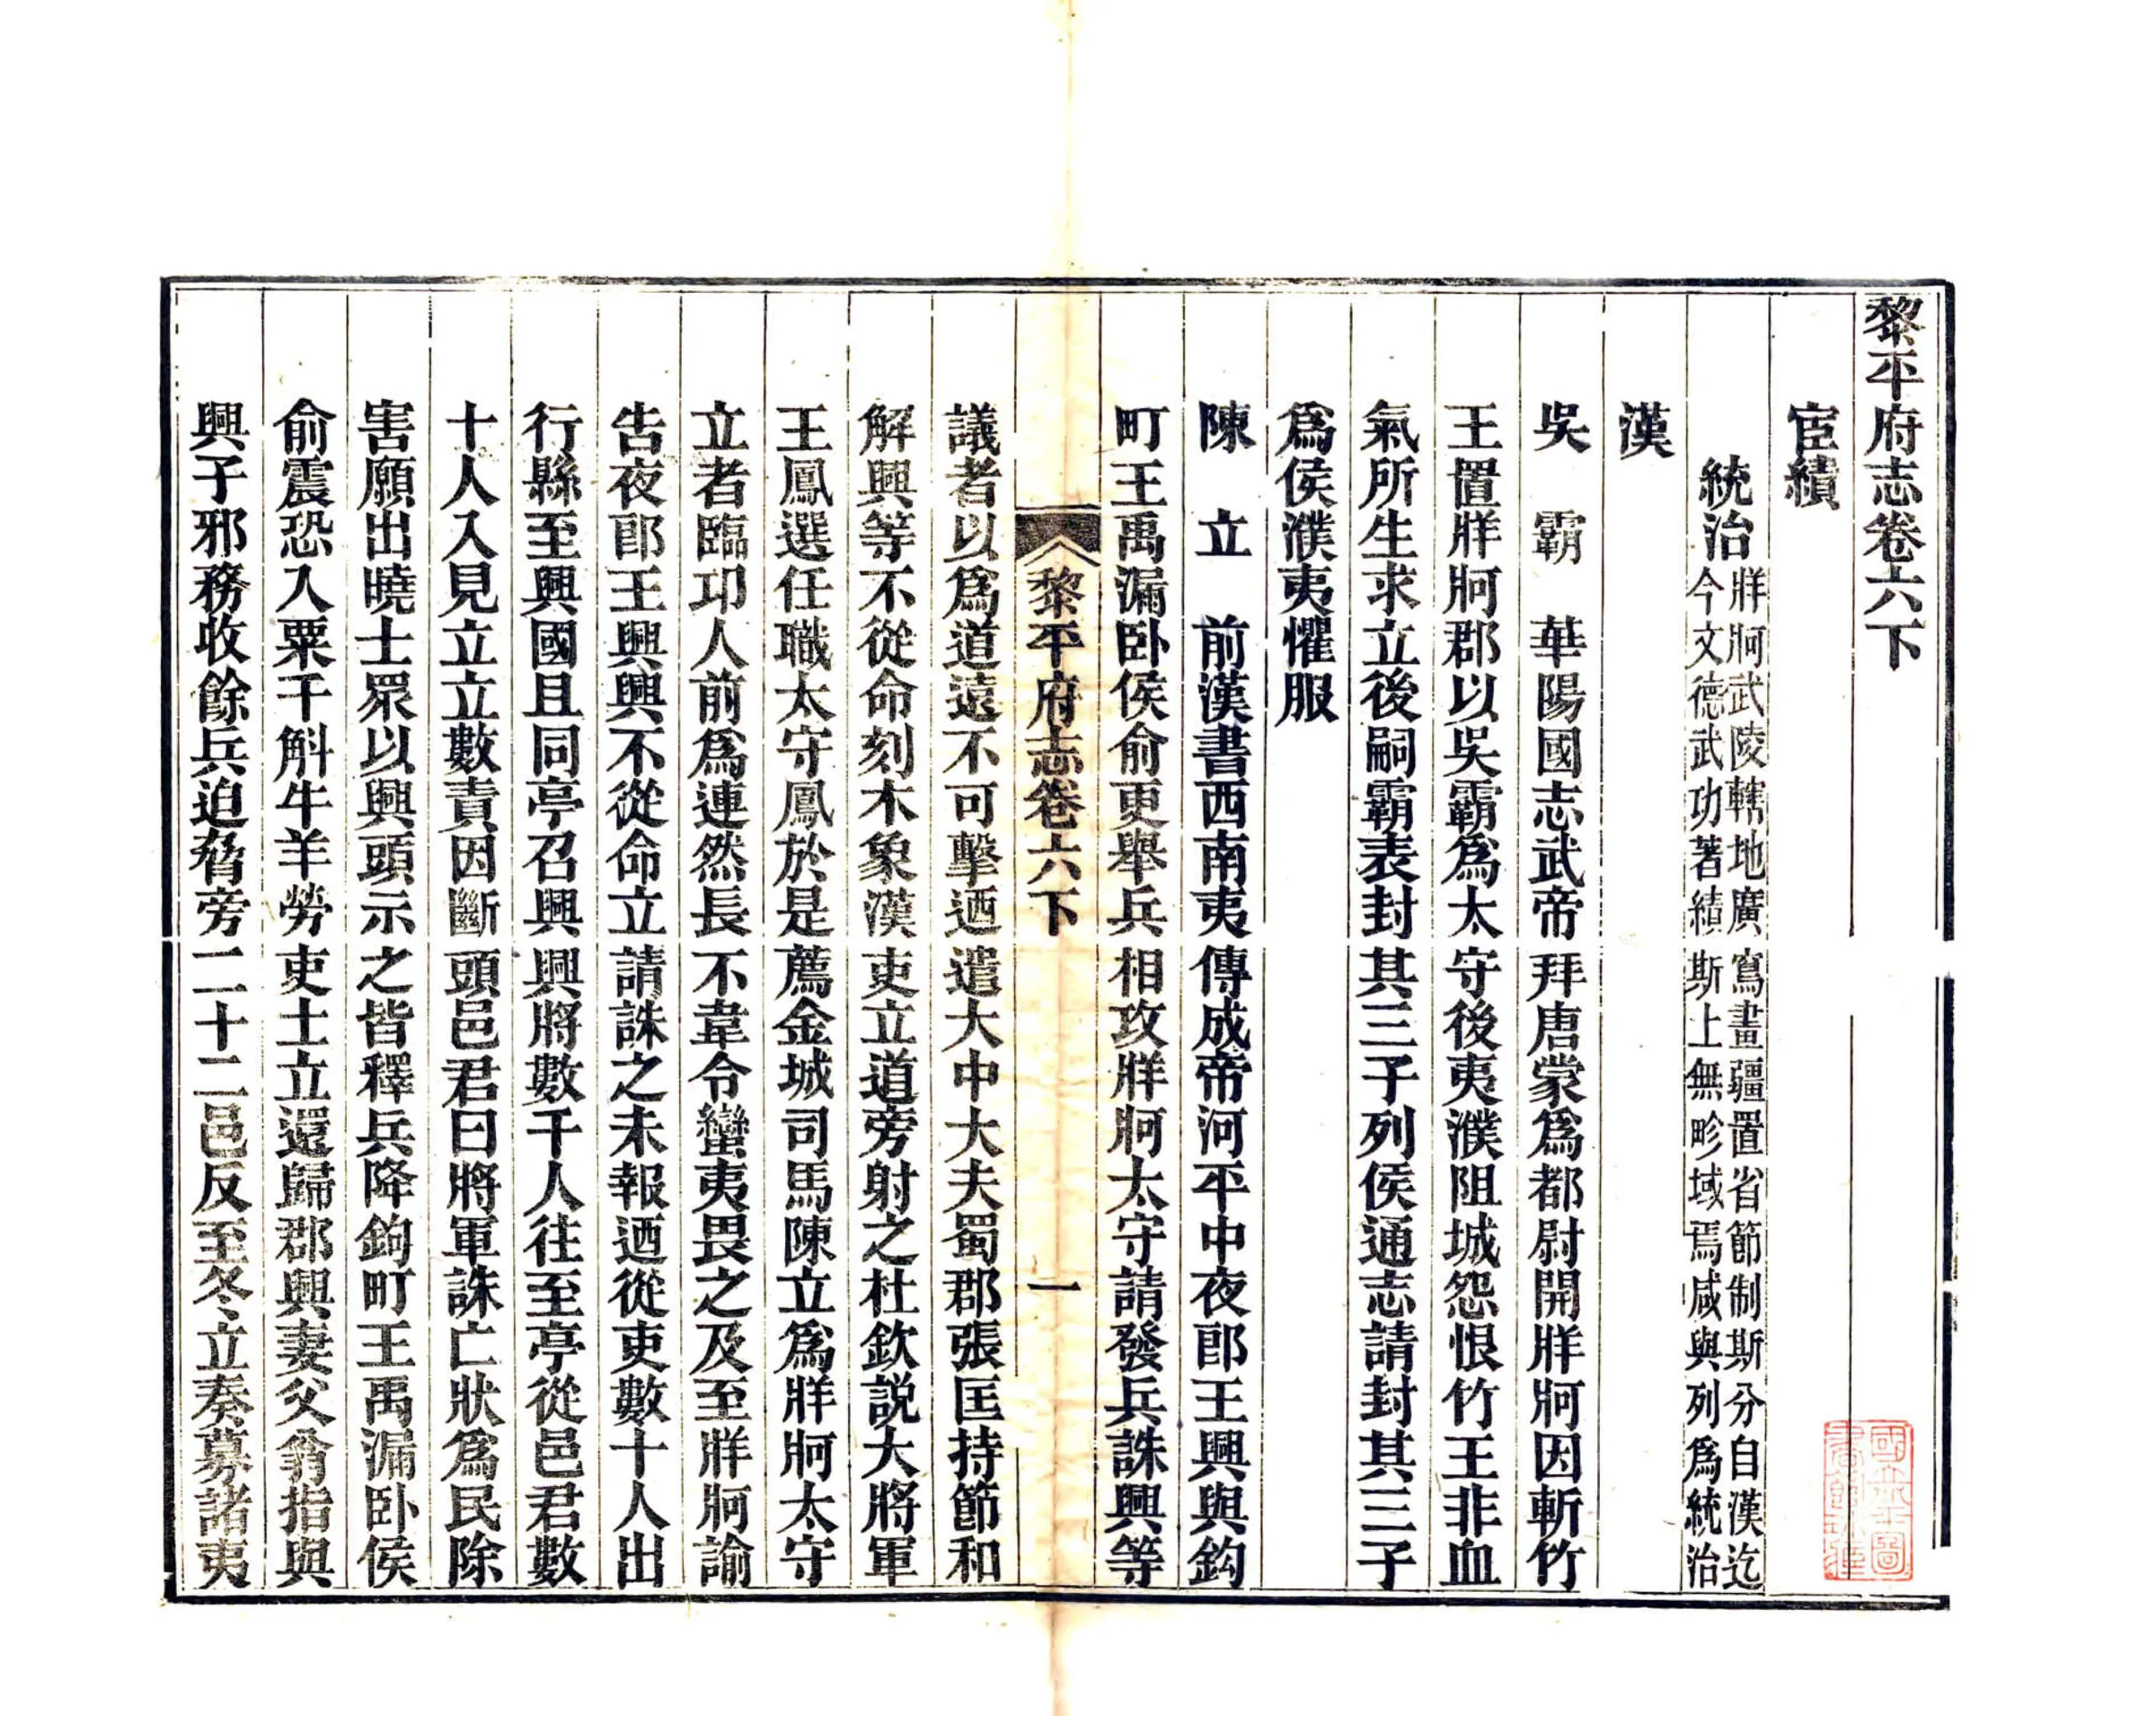 黎平府志卷六下
宦績
統治牂牁武陵轄地廣寫畫疆置省節制斯分自漢迄
今文德武功著績斯上無畛域焉咸與列爲統治
漢
吳　霸　華陽國志武帝拜唐蒙爲都尉開牂牁因斬竹
王置牂牁郡以吳霸爲太守後夷濮阻城怨恨竹王非血
氣所生求立後嗣霸表封其三子列侯通志請封其三子
爲侯濮夷懼服
陳　立　前漢書西南夷傳成帝河平中夜郎王興與鈎
町王禹漏卧侯俞更舉兵相攻牂牁太守請發兵誅興等
黎平府志卷六下　一
議者以爲道遠不可擊迺遣大中大夫蜀郡張匡持節和
解興等不從命刻木象漢吏立道旁射之杜欽説大將軍
王鳳選任職太守鳳於是薦金城司馬陳立爲牂牁太守
立者臨邛人前爲連然長不韋令蠻夷畏之及至牂牁諭
告夜郎王興興不從命立請誅之未報迺從吏數十人出
行縣至興國且同亭召興興將數千人往至亭從邑君數
十人入見立立數責因斷頭邑君曰將軍誅亡狀爲民除
害願出曉士眾以興頭示之皆釋兵降鉤町王禹漏卧侯
俞震恐入粟千斛牛羊勞吏士立還歸郡興妻父翁指與
興子邪務收餘兵迫脅旁二十二邑反至冬立奏募諸夷